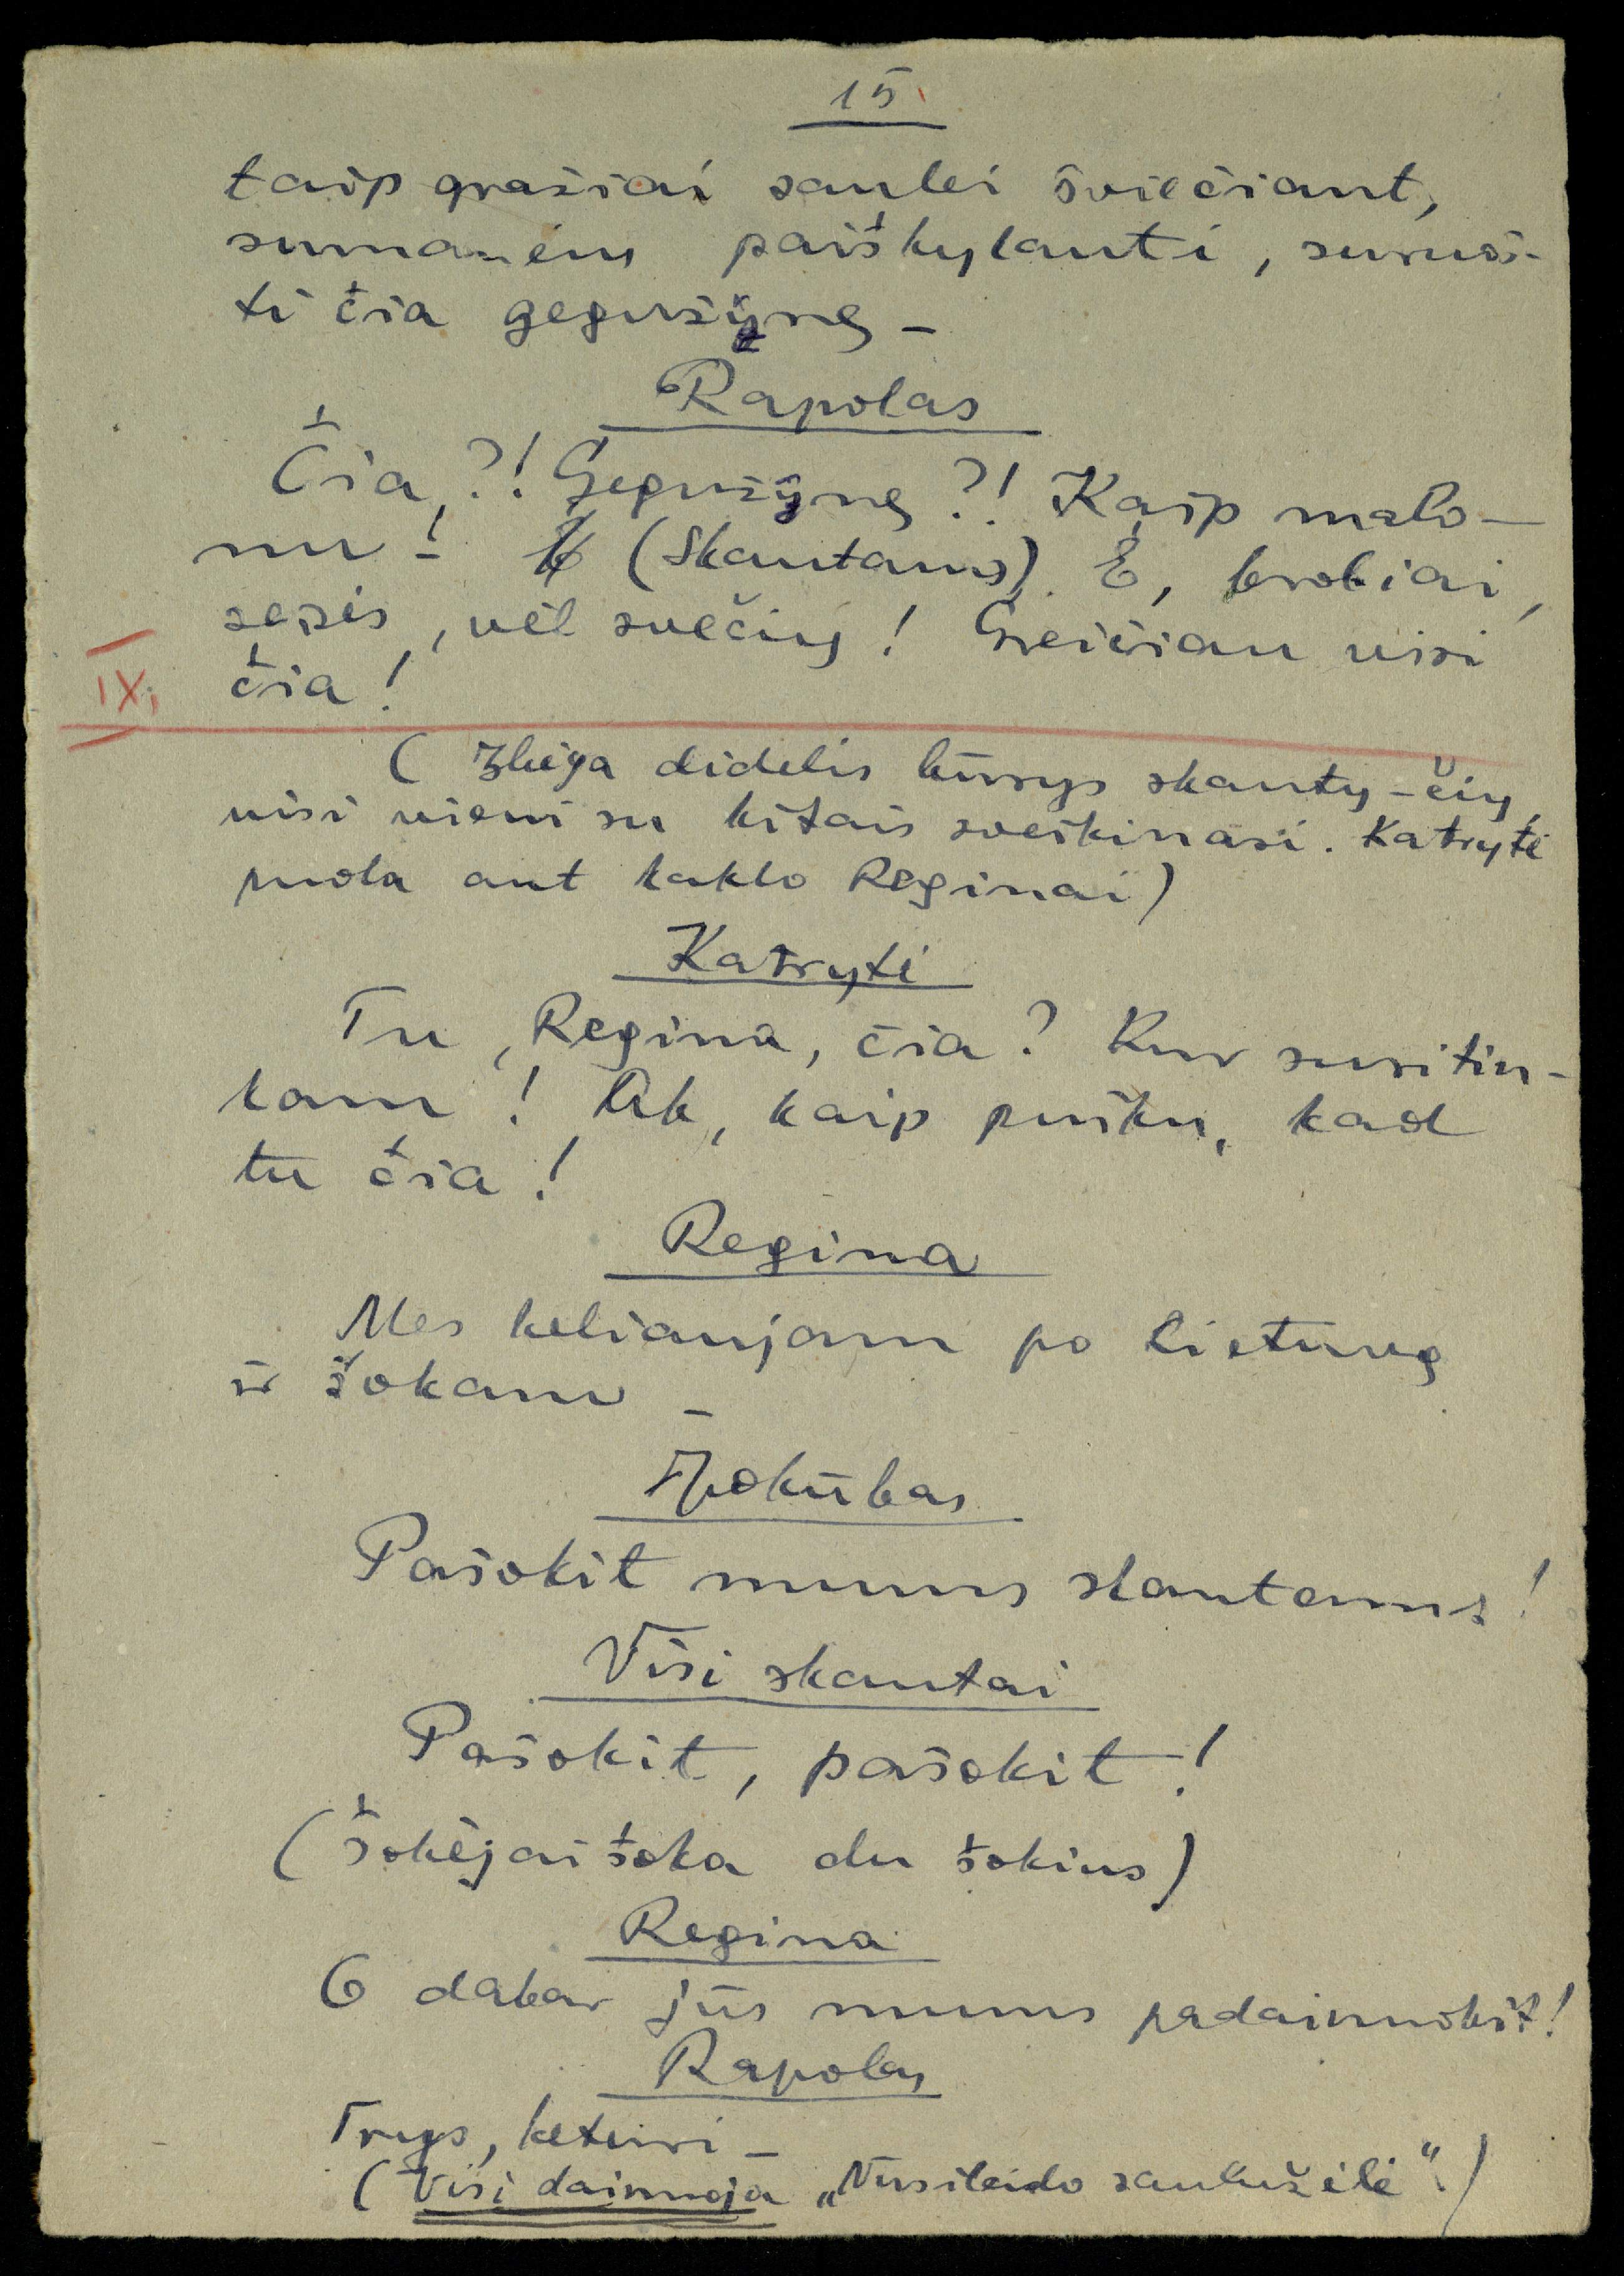 15
taip gražiai saulei šviečiant,
sumanėm paiškylauti, suruoš-
ti čia gegužynę –
Rapolas
Čia, ?! Gegužynę ?! Kaip malo-
nu – (Skautams) E, broliai,
sesės, vėl svečių! Greičiau visi
IX. čia!
( Įbėga didelis būrys skautų-čių,
visi vieni su kitais sveikinasi. Katrytė
puola ant kaklo Reginai)
Katrytė
Tu, Regina, čia? Kur susitin-
kam! Ak, kaip puiku, kad
tu čia!
Regina
Mes keliaujam po Lietuvą
ir šokam –
Apokūkas
Pašokit mums skautams!
Visi skautai
Pašokit, pašokit!
(Šokėjai šoka du šokius)
Regina
O dabar jūs mums padainuokit!
Rapolas
Trys, keturi –
(Visi dainuoja „Nusileido saulužėlė“.)